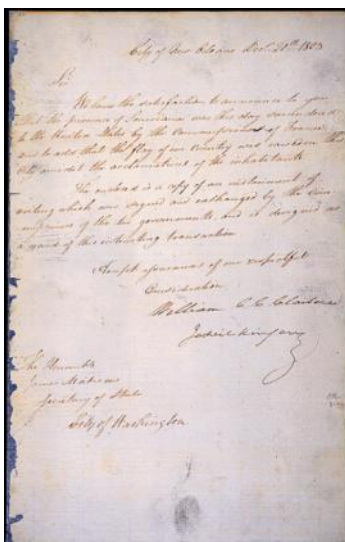 City of New Orleans Decr. 20th 1803
Sir,
We have the satisfaction to announce to you
that the province of Louisiana was this day surrendered
to the United States by the Commissioner of France;
and to add that the flag of our Country was raised in this
City amidst the acclamations of the inhabitants.
The enclosed is a copy of an instrument of
writing which was signed and exchanged by the Com-
missioners of the two governments, and is designed as
a record of this interesting transaction
Accept assurances of our respectful
Consideration
William C. C. Claiborne
The Honorable
James Madison
Secretary of State
City of Washington